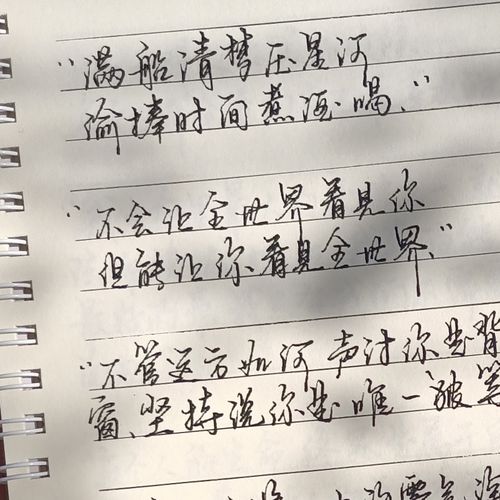 “满船清梦压星河
偷捧时间煮酒喝.”
“不会让全世界看见你
但能让你看见全世界.”
“不管远方如何声讨你是背
坚持说你是唯一